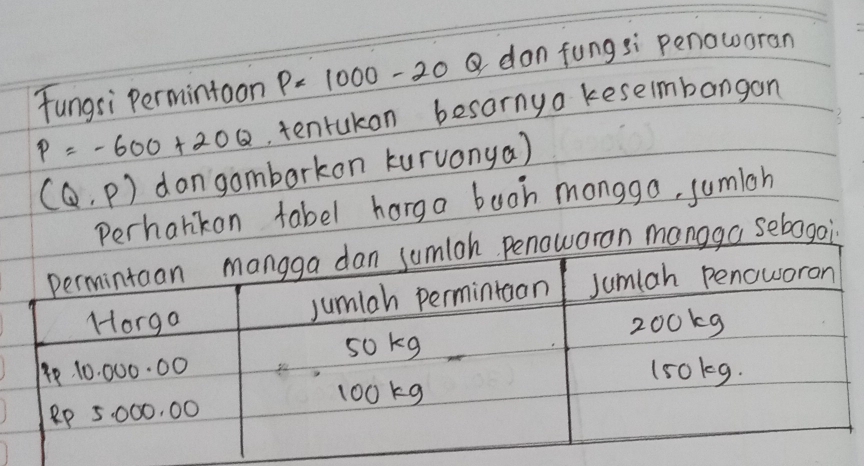 Fungsi Permintaan P= 1000 - 20 Q dan fungsi penawaran
P = - 600 + 20Q. tentukan besarnya keseimbangan
(Q.P) dan gambarkan kurvanya)
Perhatikan tabel harga buah mangga, jumlah
permintaan mangga dan jumlah penawaran mangga sebagai.
Harga jumlah permintaan jumlah penawaran
Rp 10.000.00 50 kg 200 kg
Rp 5.000.00 100 kg 150 kg.